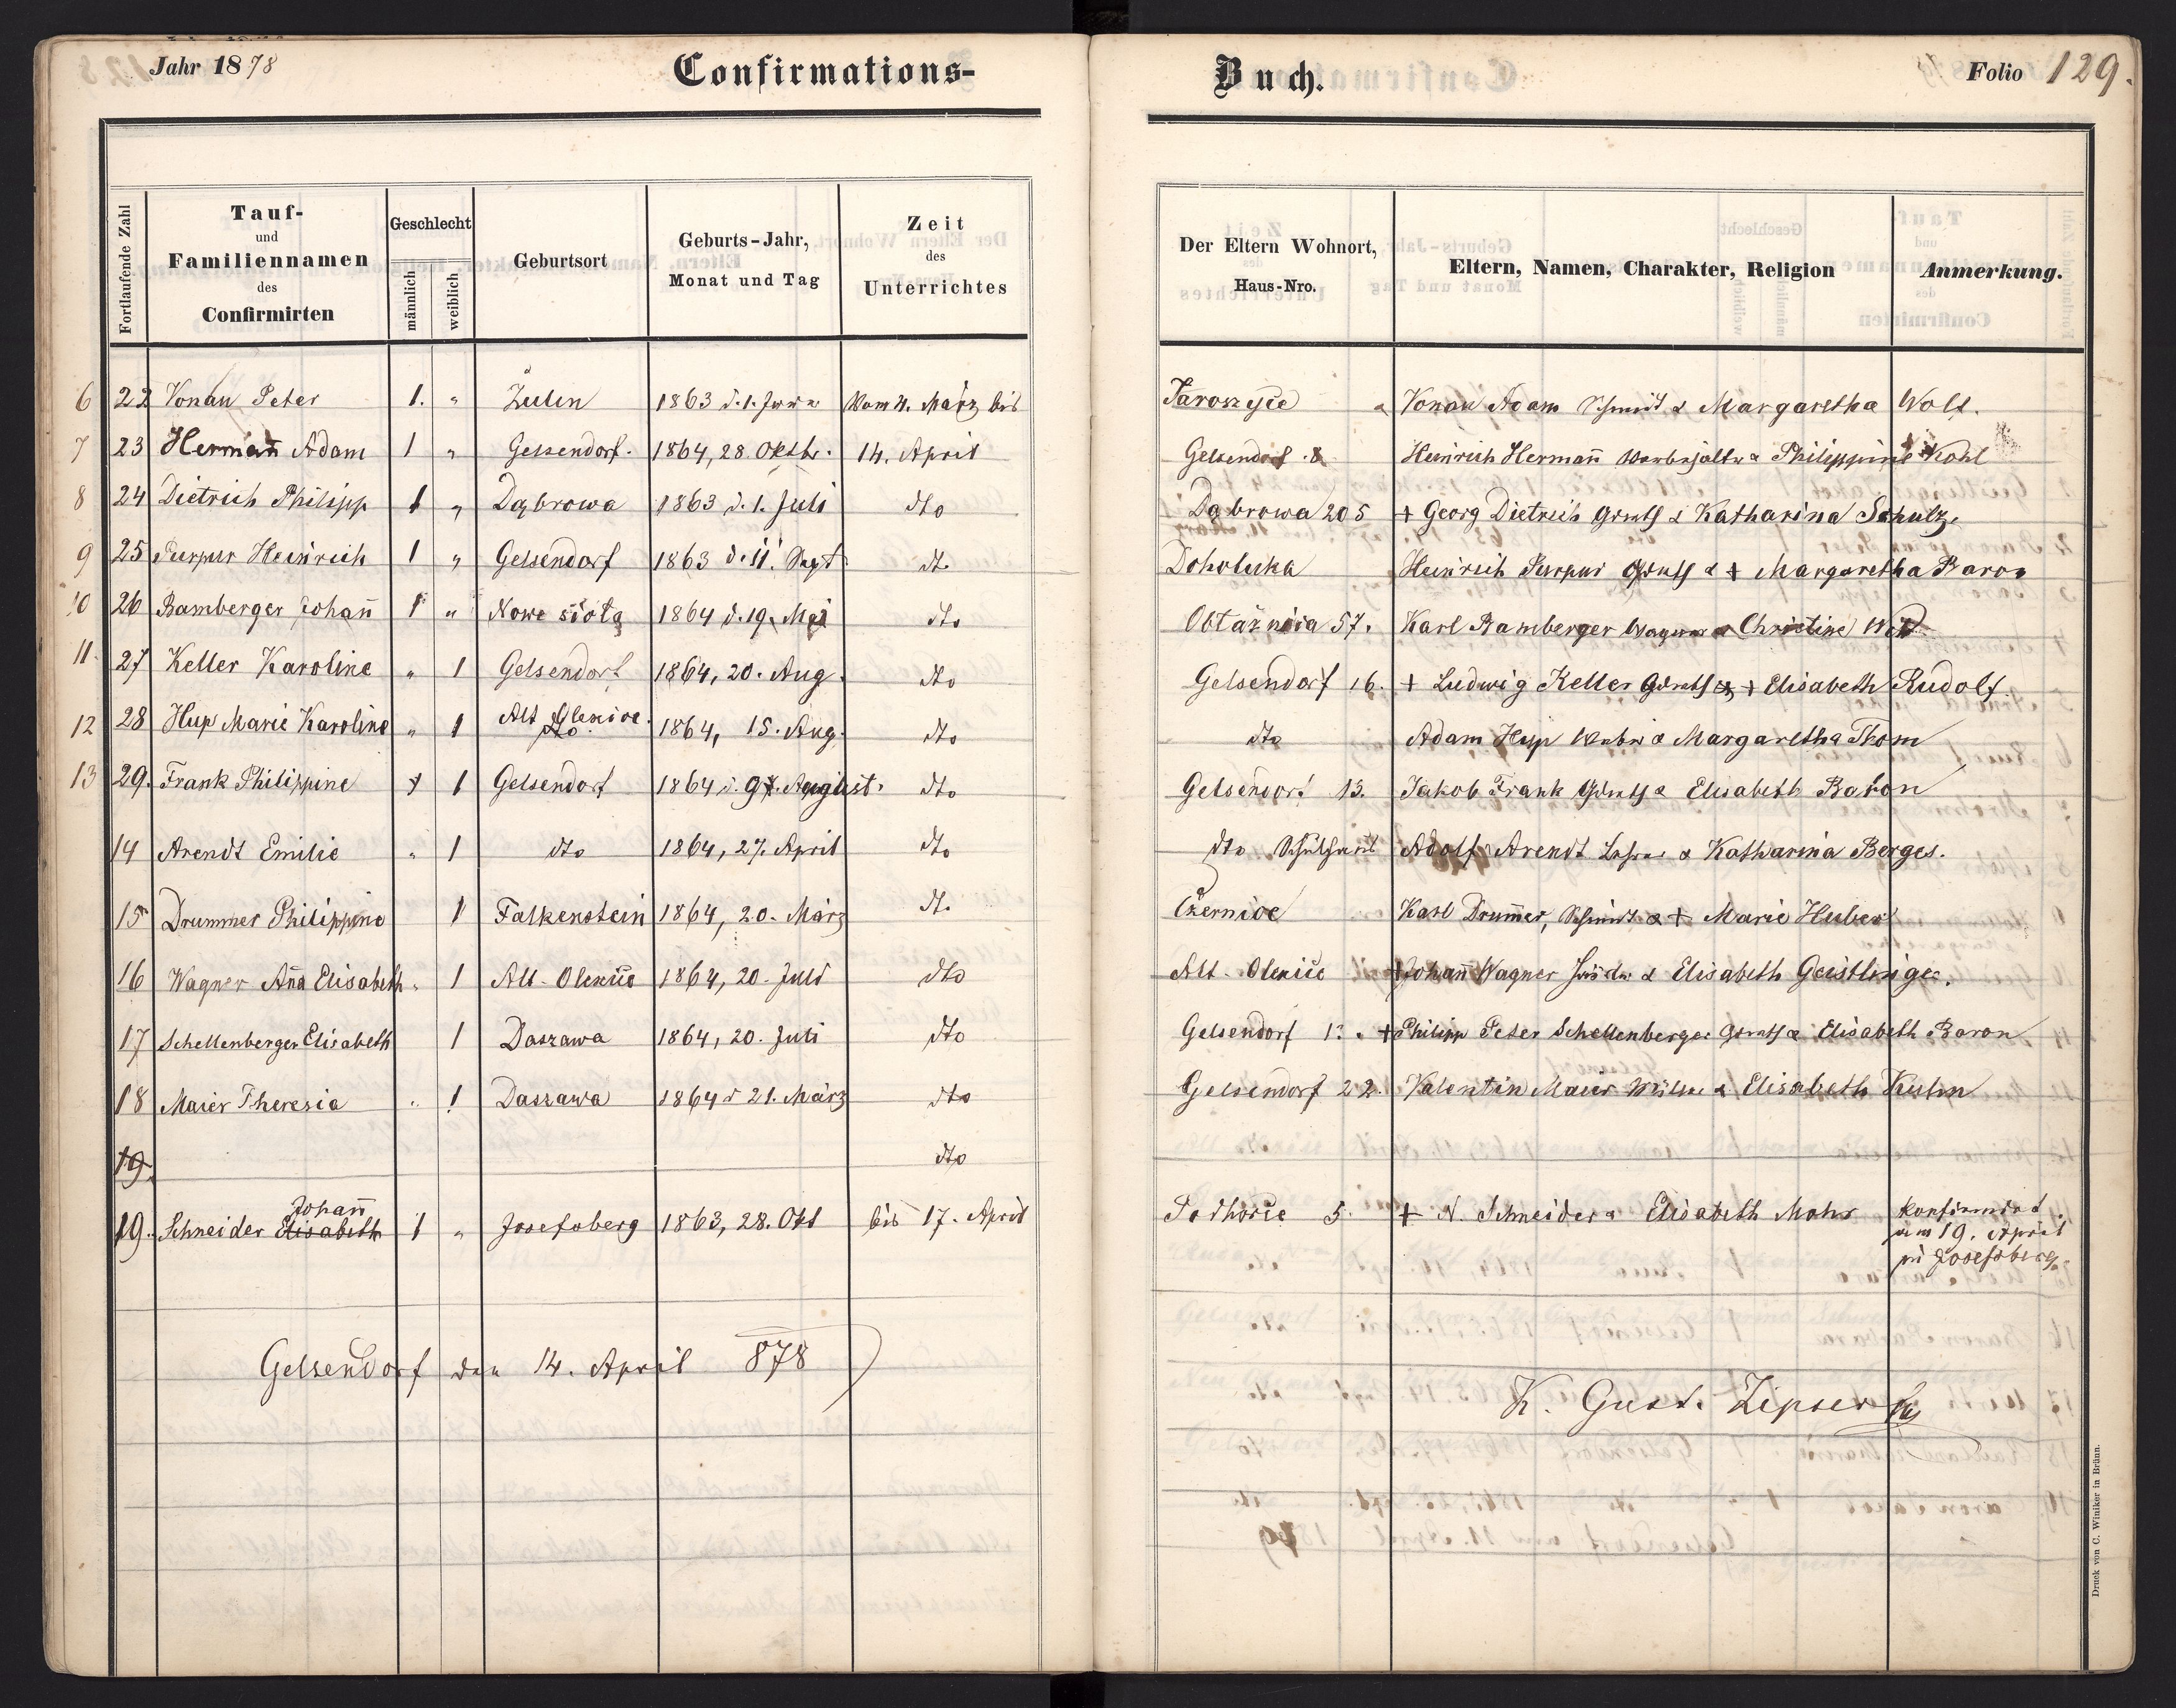 Jahr 1878 Confirmations- Buch. Folio 129.
Fortlaufende Zahl
Tauf-
und
Familiennamen
des
Confirmirten
Geschlecht
männlich
weiblich
Geburtsort
Geburts-Jahr,
Monat und Tag
Zeit
des
Unterrichtes
Der Eltern Wohnort,
Haus-Nro.
Eltern, Namen, Charakter, Religion
Anmerkung.
6 22 Vonau Peter 1. " Zulin 1863 d. 1. Juni Vom 4. März bis Jaroszyce Vonau Adam Schmied & Margaretha Wolf.
7 23 Hermañ Adam 1 " Gelsendorf. 1864, 28. Oktbr. 14. April Gelsendorf 8. Heinrich Hermañ & Philippine Kohl
8 24 Dietrich Philipp 1 " Dąbrowa 1863 d. 1. Juli dto Dąbrowa 205 + Georg Dietrich Grndb & Katharina Schulz.
9 25 Purpur Heinrich 1 " Gelsendorf 1863 d. 11. Sept dt. Doholuka Heinrich Purpur & + Margaretha Baron
10 26 Bamberger Johañ 1 " Nowe sioła 1864 d. 19. Mai dto Obłaźnica 57. Karl Bamberger Wagner & Christine
11. 27 Keller Karoline " 1 Gelsendorf 1864, 20. Aug. dto Gelsendorf 16. + Ludwig Keller & + Elisabeth Rudolf.
12 28 Hup Marie Karoline " 1 Alt Olexice. 1864, 15. Aug. dto dto Adam Hup & Margaretha Thom
13 29. Frank Philippine 1 Gelsendorf 1864 d. 9. August. dto Gelsendorf 13. Jakob Frank & Elisabeth Baron
14 Arendt Emilie " 1 dto 1864, 27. April dto dto Adolf Arendt Lehrer & Katharina Berges.
15 Drummer Philippine 1 Falkenstein 1864, 20. März dt. Czernice Karl Drum̄er, Schmied & + Marie Huber
16 Wagner Aña Elisabeth " 1 Alt-Olexice 1864, 20. Juli dto Alt-Olexice + Johañ Wagner & Elisabeth Geistlinger.
17 Schellenberger Elisabeth 1 Daszawa 1864, 20. Juli dto Gelsendorf + Philipp Peter Schellenberger & Elisabeth Baron
18 Maier Theresia " 1 Daszawa 1864 d 21. März dto Gelsendorf 22. Valentin Maier & Elisabeth Kuhn
19. dto
Johañ
19. Schneider Elisabeth 1 " Josefsberg 1863, 28. Okt bis 17. April Podhorce 5. + N. Schneider & Elisabeth Mohr konfirmirt
am 19. April
in Josefsberg
Gelsendorf den 14. April 878
K. Gust. Zipser
Druck von C. Winiker in Brünn.